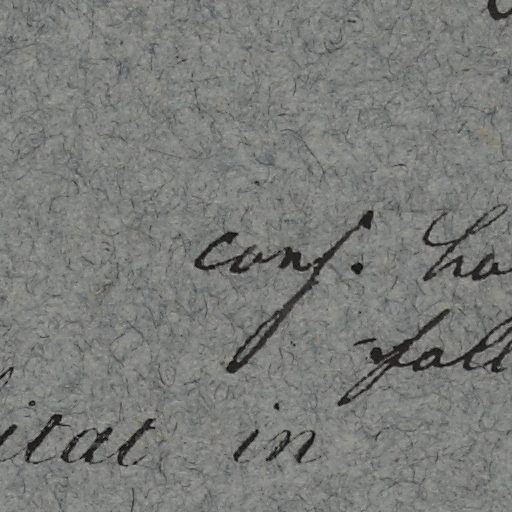 conf. ha
-fall
itat in